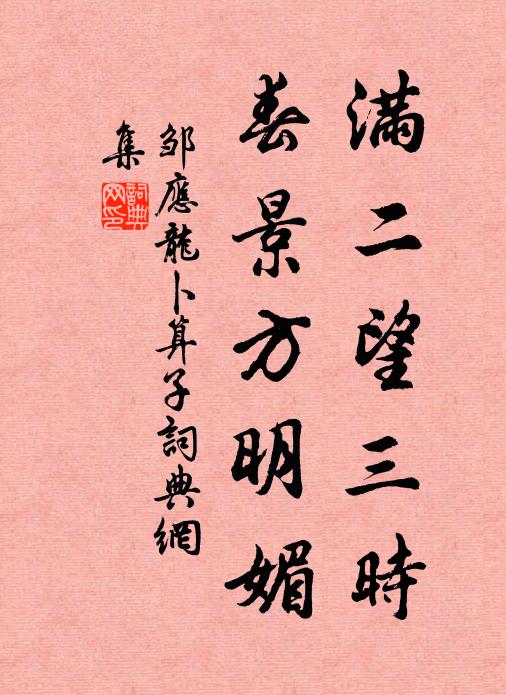 滿二望三時
春景方明媚
邹應龍卜算子詞典網
集
詞典
网印